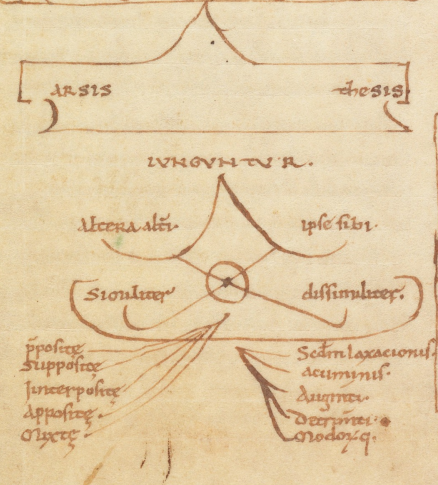 ARSIS thesis
IUNGUNTUR.
Altera alt̄i. ipse sibi.
Similiter dissimiliter.
p̄positę
Suppositę
Interpositę
Appositę.
Mixtę
Scd̄m laxacionis.
acuminis.
Augm̄ti.
Detrim̄ti.
Modorq̨.